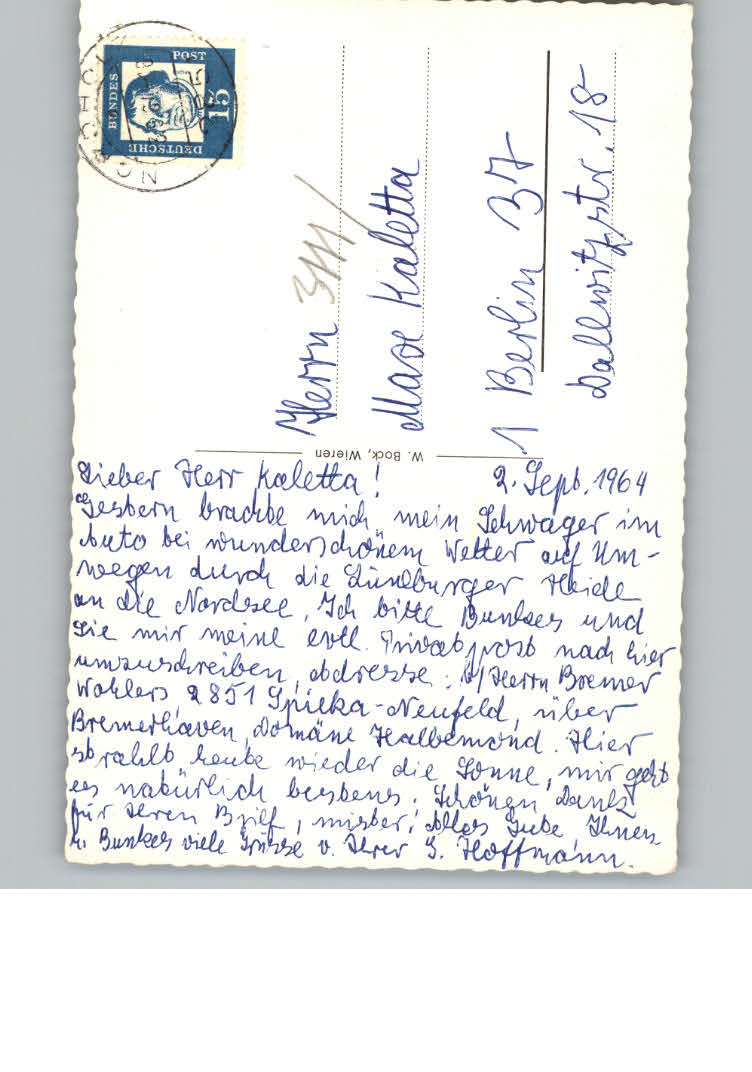 Lieber Herr Kaletta! 2. Sept. 1964
Gestern brachte mich mein Schwager im
Auto bei wunderschönem Wetter auf Um-
wegen durch die Lüneburger Heide
an die Nordsee. Ich bitte Bunkes und
Sie mir meine evtl. Privatpost nach hier
umzuschreiben, Adresse: b/Herrn Bremer
Wohlers, 2851 Spieka-Neufeld, über
Bremerhaven, Domäne Halbemond. Hier
strahlt heute wieder die Sonne, mir geht
es natürlich bestens. Schönen Dank
für Ihren Brief, Alles Gute Ihnen
u. Bunkes viele Grüsse v. Ihrer G. Hoffmann.
W. Bock, Wieren
Herrn
Max Kaletta
1 Berlin 37
Dallwitzstr. 18
DEUTSCHE
BUNDES
POST
15